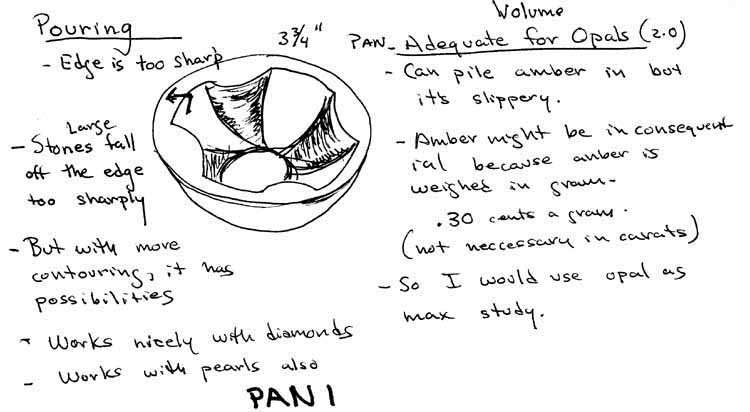 Pouring
- Edge is too sharp
Large
- Stones fall
off the edge
too sharply
- But with more
contouring, it has
possibilities
- Works nicely with diamonds
- Works with pearls also
3 3/4"
Volume
PAN - Adequate for Opals (2.0)
- Can pile amber in but
it's slippery.
- Amber might be inconsequent
ial because amber is
weighed in gram-
.30 cents a gram.
(not neccessary in carats)
- So I would use opal as
max study.
PAN 1